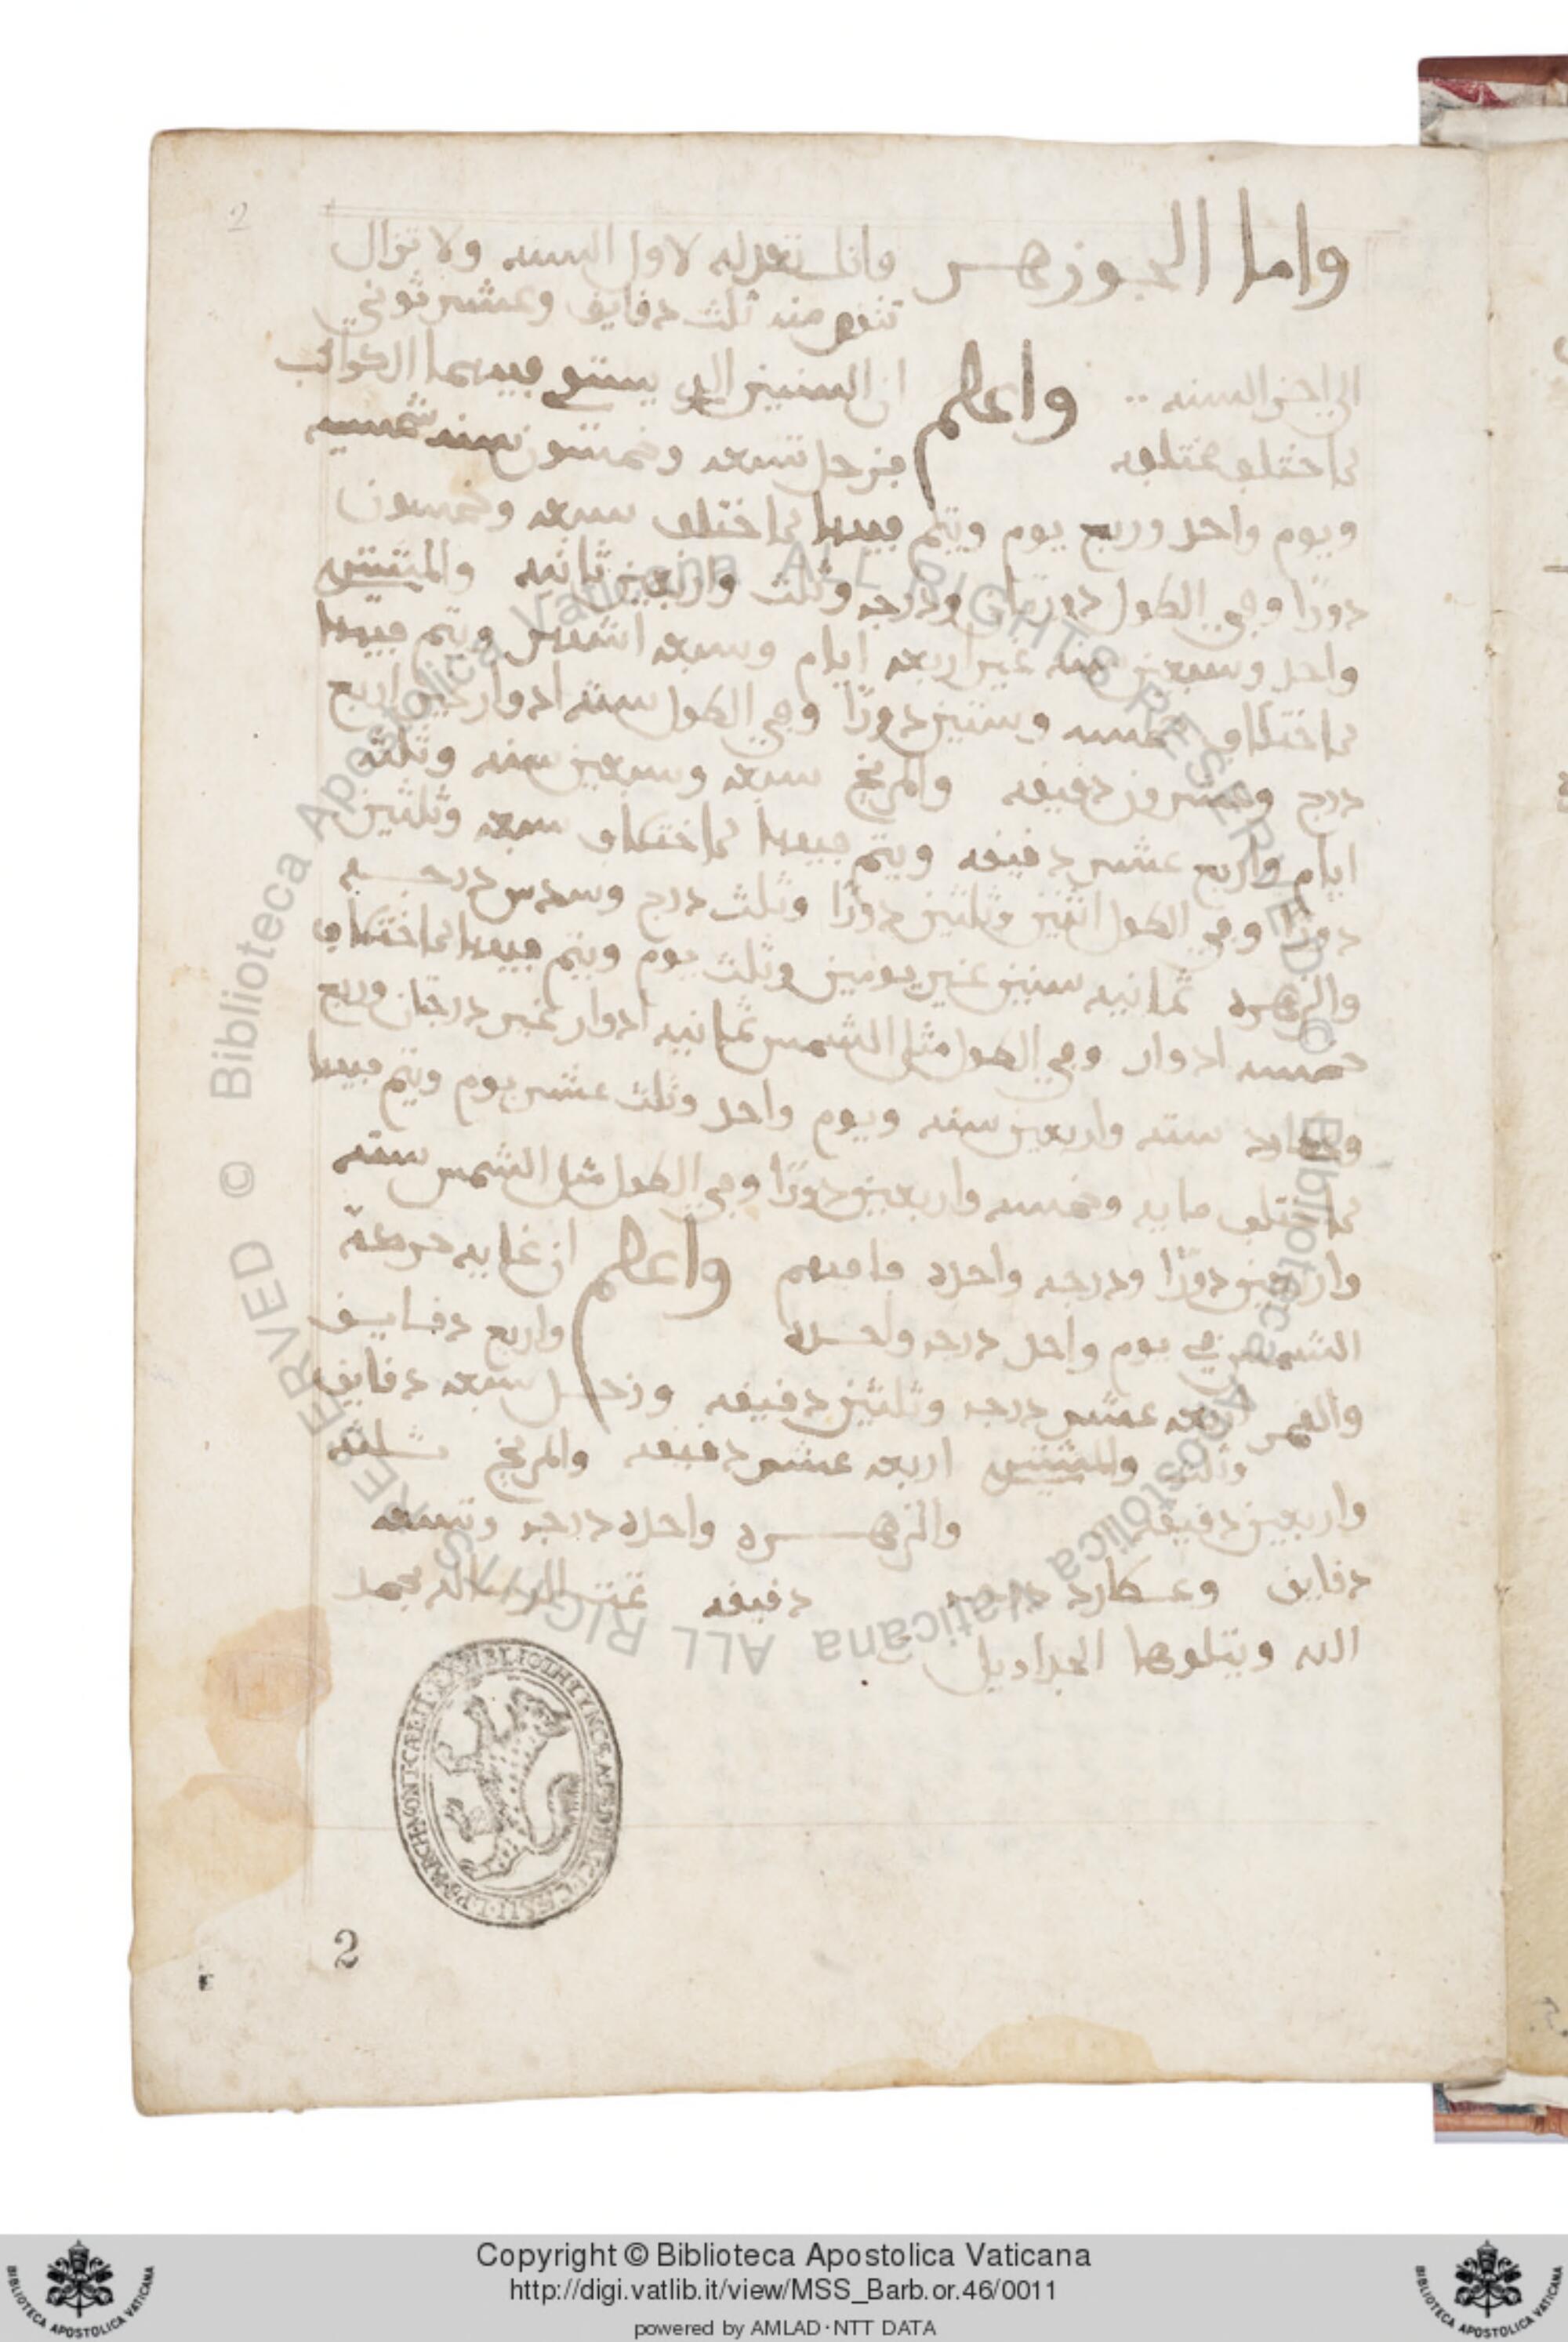 2
واما الجوزهر فانك تعدله لاول السنه ولا تزال
تنقص منه ثلث دقايق وعشر ثوني
الى اخر السنه .. واعلم ان السنين الدي يستوي فيهما الكواكب
باختلاف مختلفه فزحل تسعه وخمسون سنه شمسيه
ويوم واحد وربع يوم ويتم فيها باختلاف سبعه وخمسون
دورًا وفي الطول دورتان ودرجه وثلث واربعين ثانيه والمشتري
واحد وسبعين سنه غير اربعه ايام وسبعه اسدس ويتم فيها
باختلاف خمسه وستين دورًا وفي الطول سته ادوار غير اربع
درج وعشرون دقيقه والمريخ سبعه وسبعين سنه وثلثه
ايام واربع عشر دقيقه ويتم فيها باختلاف سبعه وثلثين
دورًا وفي الطول اثنين وثلثين دورًا وثلث درج وسدس درجه
والزهره ثمانيه سنين غير يومين وثلث يوم ويتم فيها باختلاف
خمسه ادوار وفي الطول مثل الشمس ثمانيه ادوار غير درجتان وربع
وعطارد سته واربعين سنه ويوم واحد وثلث عشر يوم ويتم فيها
باختلاف مايه وخمسه واربعين دورًا وفي الطول مثل الشمس سته
واربعين دورًا ودرجه واحده فافهم واعلم ان غايه حركة
الشمس في يوم واحد درجه واحده واربع دقايق
والقمر اربعه عشر درجه وثلثين دقيقه وزحل سبعه دقايق
وثلث والمشتري اربعه عشر دقيقه والمريخ ثلثه
واربعين دقيقه والزهره واحده درجه وتسعه
دقايق وعطارد درجه دقيقه تمت الرساله بحمد
الله ويتلوها الجداويل
2
Copyright © Biblioteca Apostolica Vaticana
http://digi.vatlib.it/view/MSS_Barb.or.46/0011
powered by AMLAD · NTT DATA